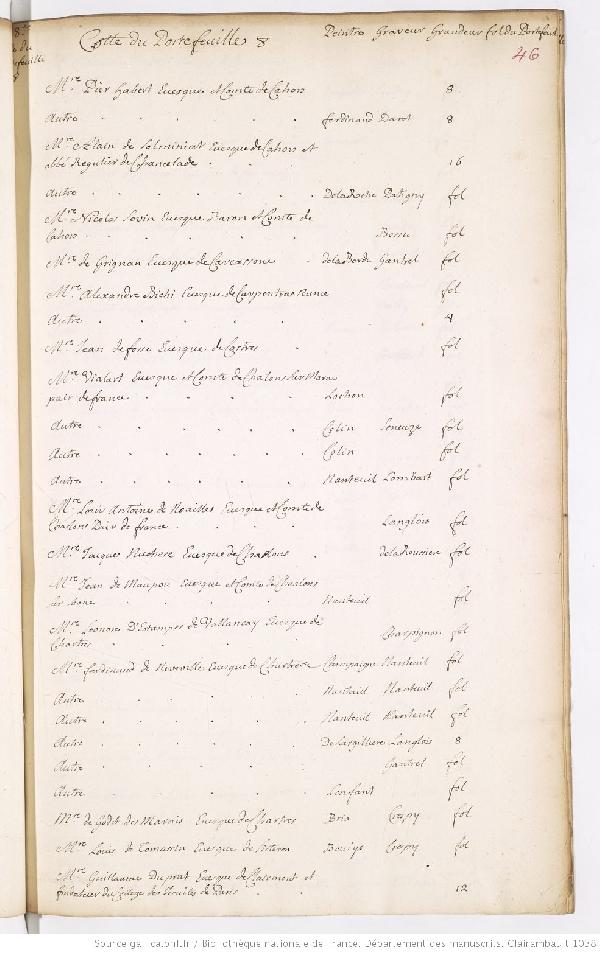 Cotte du Portefeuille 8 Peintre Graveur Grandeur fol du Portefeuil
46
Mre Pier habert Evesque et Comte de Cahors 8
Autre ferdinand Daret 8
Mre Alain de Solminiat Evesque de Cahors et
abbé Regulier de Chancelade 16
Autre Dela Roche Patigny fol
Mre Nicolas Sevin Evesque Baron et Comte de
Cahors fol
Mre de Grignan Evesque de Carcassone dela Borde Gantrel fol
Mre Alexandre Bichi Evesque de Carpentras Nunce fol
Autre 4
Mre Jean de fosse Evesque de Castres fol
Mre Vialart Evesque et Comte de Chalons sur Marne
pair de france Lochon fol
Autre Colin fol
Autre Colin fol
Autre Nanteuil Lombart fol
Mre Louis Antoine de Noailles Evesque et Comte de
Chalons Pair de france Langlois fol
Mre Jaques Evesque de Chalons fol
Mre Jean de Maupou Evesque et Comte de Chalons
sur sone Nanteuil fol
Mre Leonore D'Estampes de Vallancay Evesque de
Chartres Charpignon fol
Mre ferdinand de Neuville Evesque de Chartres Champaigne Nanteuil fol
Autre Nanteuil Nanteuil fol
Autre Nanteuil Nanteuil fol
Autre De Largilliere Langlois 8
Autre Gantrel fol
Autre Lenfant fol
Mre de Godet des Marais Evesque de Chartres Crepy fol
Mre Louis de Tomassin Evesque de Sisteron Crepy fol
Mre Guillaume Du prat Evesque de Clairmont et
fondateur du College des Jesuites de Paris 12
Source gallica.bnf.fr / Bibliothèque nationale de France. Département des manuscrits. Clairambault 1038